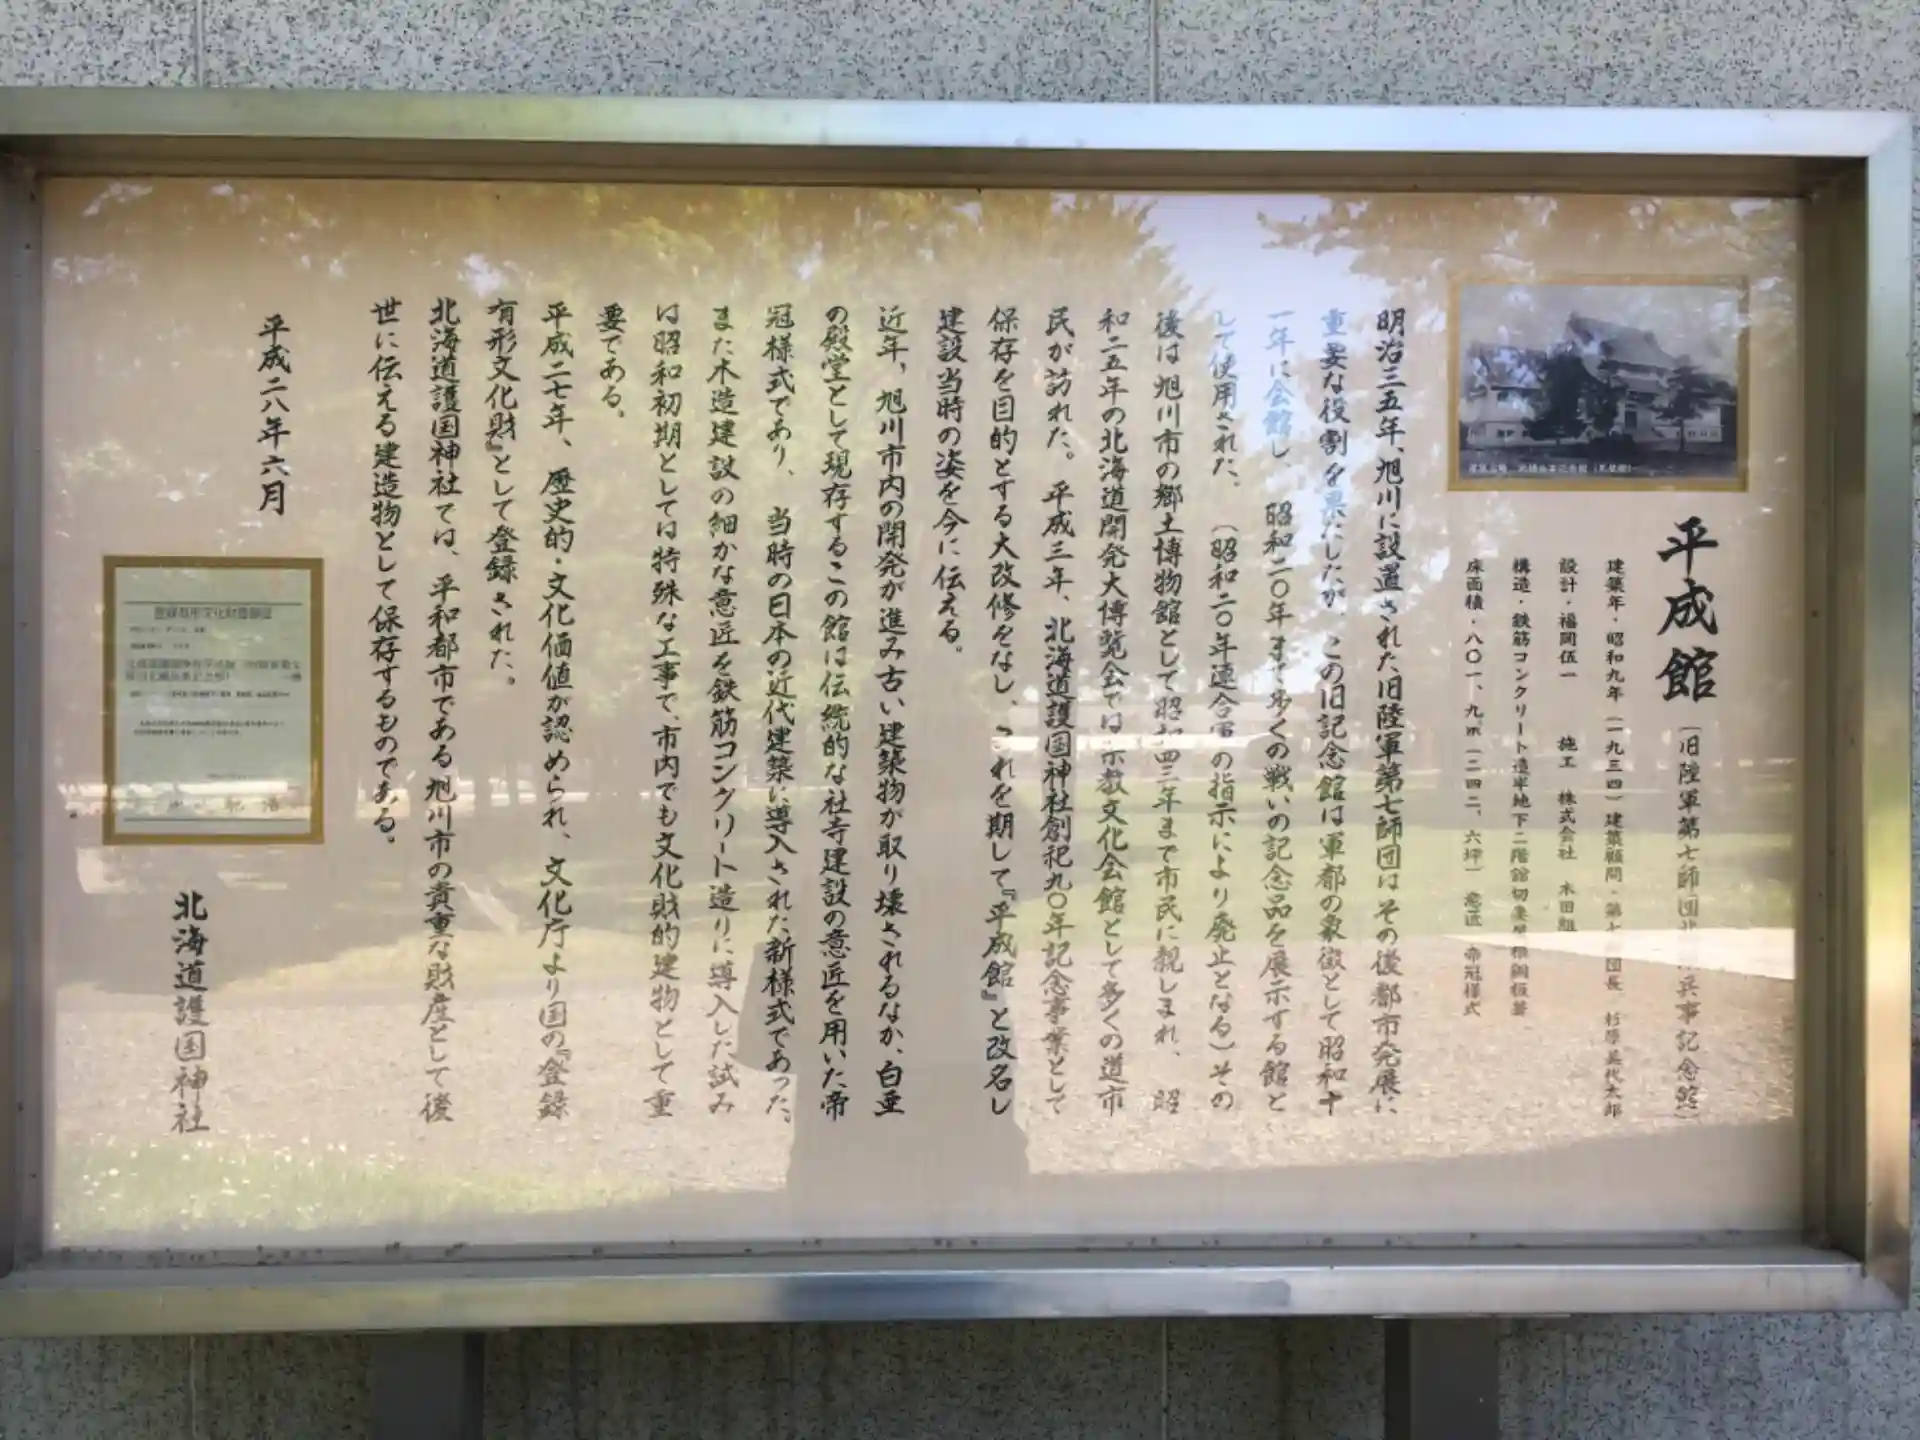 平成館
（旧陸軍第七師団北鎮兵事記念館）
建築年・昭和九年（一九三四）建築顧問・第七師団長、杉原美代太郎
設計・福岡伍一　施工　株式会社　木田組
構造・鉄筋コンクリート造半地下二階館切妻屋根銅板葺
床面積・八〇一、九㎡（二四二、六坪）意匠　帝冠様式
明治三五年、旭川に設置された旧陸軍第七師団はその後都市発展に
重要な役割を果たしたが、この旧記念館は軍都の象徴として昭和十
一年に会館し、昭和二〇年まで多くの戦いの記念品を展示する館と
して使用された。（昭和二〇年連合軍の指示により廃止となる）その
後は旭川市の郷土博物館として昭和四三年まで市民に親しまれ、昭
和二五年の北海道開発大博覧会では宗教文化会館として多くの道市
民が訪れた。平成三年、北海道護国神社創祀九〇年記念事業として
保存を目的とする大改修をなし、これを期して『平成館』と改名し
建設当時の姿を今に伝える。
近年、旭川市内の開発が進み古い建築物が取り壊されるなか、白亜
の殿堂として現存するこの館は伝統的な社寺建設の意匠を用いた帝
冠様式であり、当時の日本の近代建築に導入された新様式であった。
また木造建設の細かな意匠を鉄筋コンクリート造りに導入した試み
は昭和初期としては特殊な工事で、市内でも文化財的建物として重
要である。
平成二七年、歴史的・文化価値が認められ、文化庁より国の『登録
有形文化財』として登録された。
北海道護国神社では、平和都市である旭川市の貴重な財産として後
世に伝える建造物として保存するものである。
平成二八年六月
北海道護国神社
登録有形文化財登録証